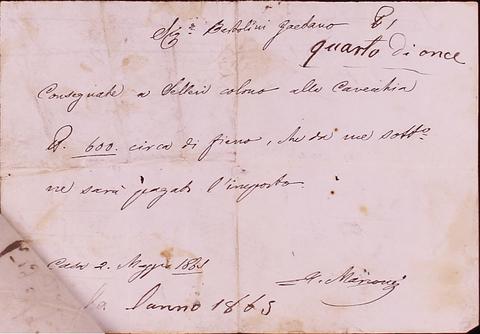 Sig.re Bertolini Gaetano
quarto di once
Consegnate a Selleri colono alla Cavecchia
600. circa di fieno, che da me sott.o
ne sarà pagato l'importo.
Casa 2. Maggio 1865
Marconi
l'anno 1865